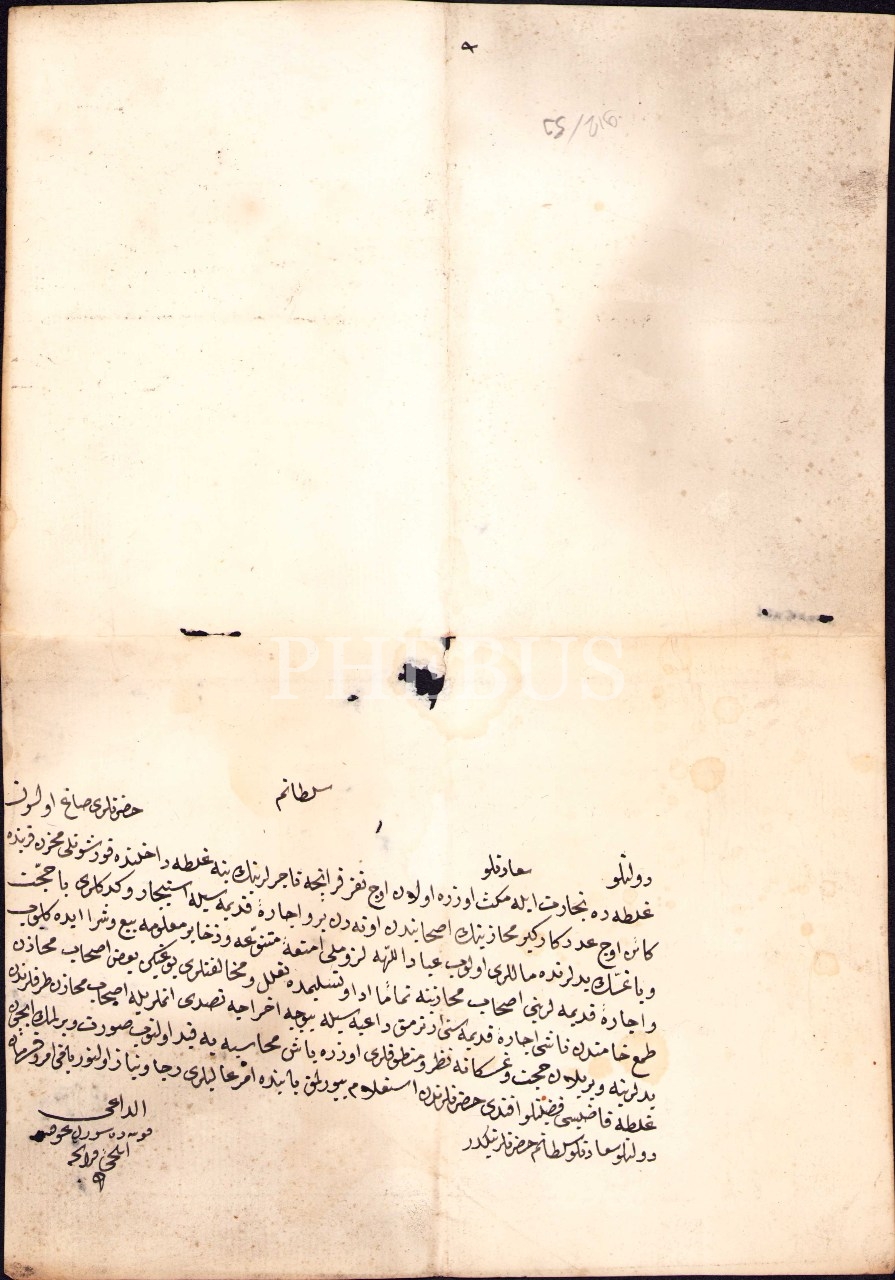 912/55
PHEBUS
دولتلو سعادتلو سلطانم حضرتلری صاغ اولسون
غلطه ده تجارت ایله مکث اوزره اولان اوچ نفر فرانچه تاجرلرینك ینه غلطه داخلنده قورشونلی مخزن قربنده
كائن اوچ عدد كارگیر محازینك اصحابندن اوته دن برو اجارهٔ قدیمه سیله استیجار و یدلرنده مال‌لری اولوب عباد اللهه لزوملی امتعهٔ متنوعه و ذخایر معلومه بیع و شرا ایده كلوب
و اجارهٔ قدیمه لرینی اصحاب محازینه تمامًا ادا و تسلیمده تعلل و مخالفتلری یوغیكن بعض اصحاب محازن
طمع خامندن ناشی اجارهٔ قدیمه سنی ارترمق داعیه سیله بیوجه اخراجه تصدی ایتملریله اصحاب محازن طرفلرندن
یدلرینه ویریلان حجت و تمسكاته نظر و منطوقلری اوزره باش محاسبه یه قید اولنوب صورت ویرلمك ایچون
غلطه قاضیسی فضیلتلو افندی حضرتلرندن استعلام بیورلمق بابنده امر عالیلری رجا و نیاز اولنور باقی امر و فرمان
دولتلو سعادتلو سلطانم حضرتلرینكدر
الداعی
ایلچیٔ فرانچه